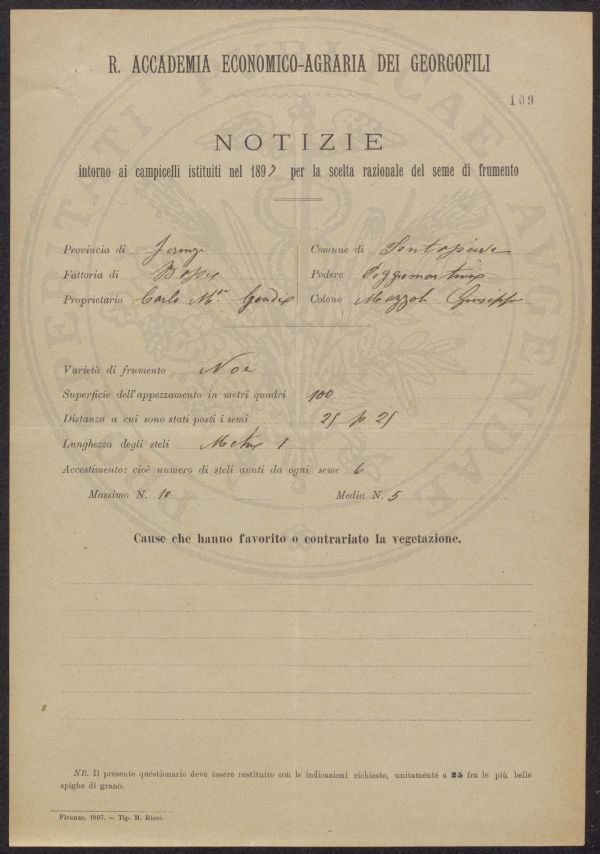 R. ACCADEMIA ECONOMICO-AGRARIA DEI GEORGOFILI
109
NOTIZIE
intorno ai campicelli istituiti nel 1897 per la scelta razionale del seme di frumento
Provincia di Firenze Comune di Pontassieve
Fattoria di Podere Poggiomartino
Proprietario Carlo Comune Colono Mazzoli Giuseppe
Varietà di frumento Noè
Superficie dell'appezzamento in metri quadri 100
Distanza a cui sono stati posti i semi 25 p 25
Lunghezza degli steli Metri 1
Accestimento: cioè numero di steli avuti da ogni seme 6
Massimo N. 10 Media N. 5
Cause che hanno favorito o contrariato la vegetazione.
NB. Il presente questionario deve essere restituito con le indicazioni richieste, unitamente a 25 fra le più belle
spighe di grano.
Firenze, 1897. — Tip. M. Ricci.
PROSPERITATI PUBLICAE AUGENDAE